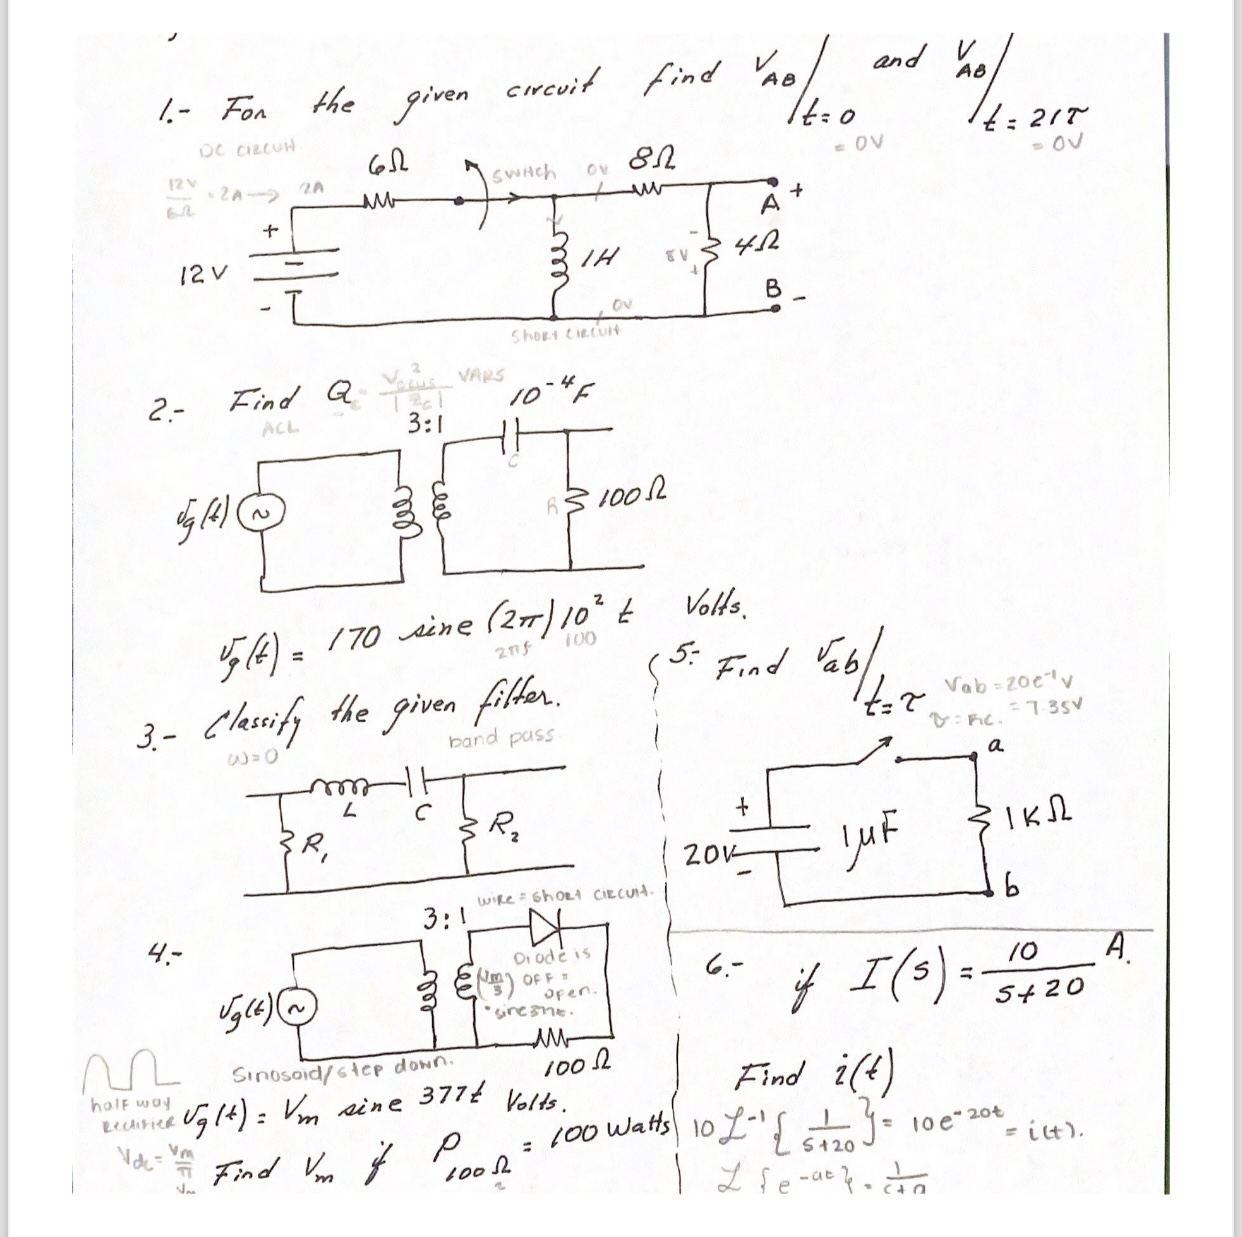 1.- For the given circuit find VAB/t=0 and VAB/t=21τ
= 0V
= 0V
DC CIRCUIT
12V/6Ω = 2A → 2A
6Ω
SWitch
0V
8Ω
A +
+
12V
-
1H
8V
-
+
4Ω
B -
0V
Short CIRCUIT
2.- Find Q
VARS
ACL
3:1
10⁻⁴F
C
vg(t)
~
R
100Ω
vg(t) = 170 sine (2π)10² t Volts.
2πf 100
3.- Classify the given filter.
ω=0
band pass
L
C
R₁
R₂
5.- Find vab/t=τ
Vab=20e⁻¹V
τ=RC. = 7.35V
a
+
20V
-
1µF
1KΩ
b
4.-
3:1
wire = short CIRCUIT.
Diode is
(Vm/3) OFF =
open.
vg(t)
~
100Ω
Sinosoid/step down.
half way
Rectifier
vg(t) = Vm sine 377t Volts.
Vdc = Vm/π
Find Vm if P100Ω = 100 Watts
6.- if I(s) = 10/(s+20) A.
Find i(t)
10 L⁻¹{1/(s+20)} = 10e⁻²⁰ᵗ = i(t).
L{e⁻ᵃᵗ} =